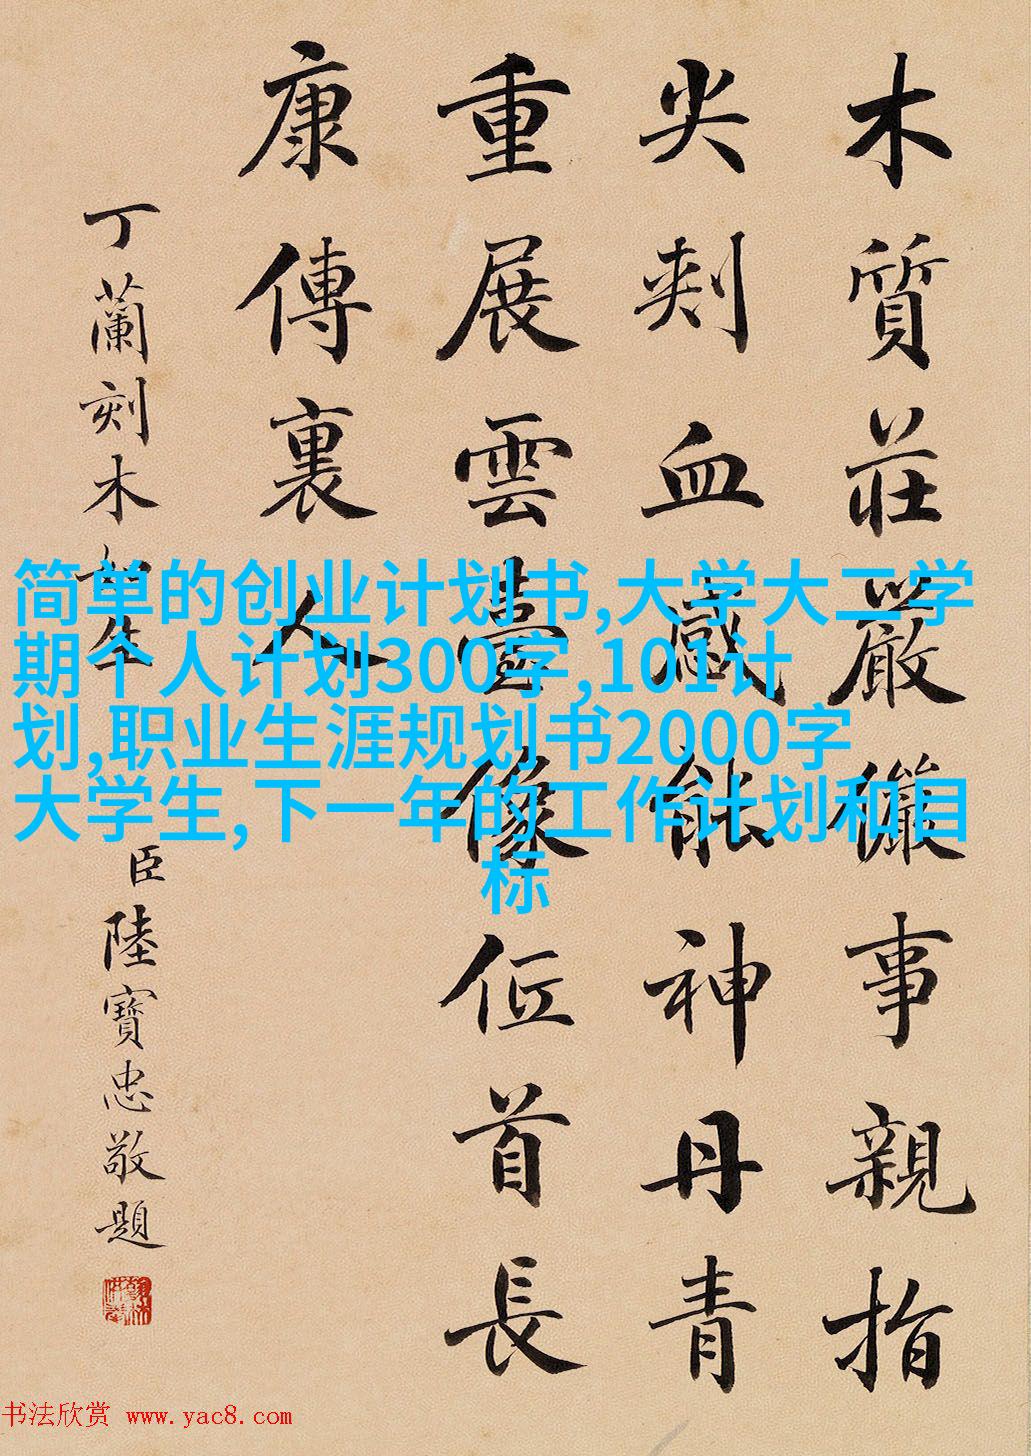 木質莊嚴儼事親指
尖刺血感能神丹青
重展雲臺像位首長
康傳裏人
丁蘭刻木如生
臣陸寶忠敬題
简单的创业计划书,大学大二学
期个人计划300字,101计
划,职业生涯规划书2000字
大学生,下一年的工作计划和目
标
书法欣赏 www.yac8.com